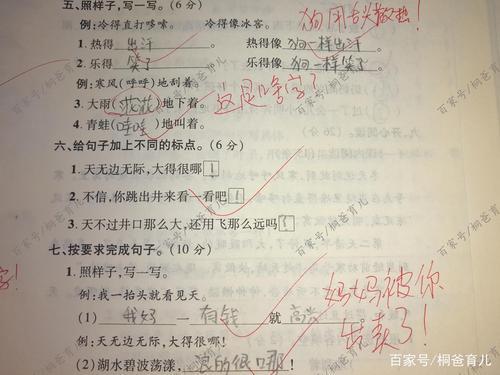 五、照样子,写一写。(6分)
例:冷得直打哆嗦。 冷得像冰客。
狗用舌头散热!
1.热得 出汗 。 热得像 狗一样出汗 。
2.乐得 笑了 。 乐得像 狗一样笑了 。
例:寒风(呼呼)地刮着。
3.大雨(花花)地下着。
这是啥字?
4.青蛙(哇哇)地叫着。
六、给句子加上不同的标点。(6分)
1.天无边无际,大得很哪!
2.不信,你跳出井来看一看吧!
3.天不过井口那么大,还用飞那么远吗?
七、按要求完成句子。(10分)
字!
1.照样子,写一写。
例:我一抬头就看见天。
妈妈被你
(1) 我妈 一 有钱 就 高兴
出卖了!
例:天无边无际,大得很哪!
(2)湖水碧波荡漾, 浪的很哪!
百家号/桐爸育儿